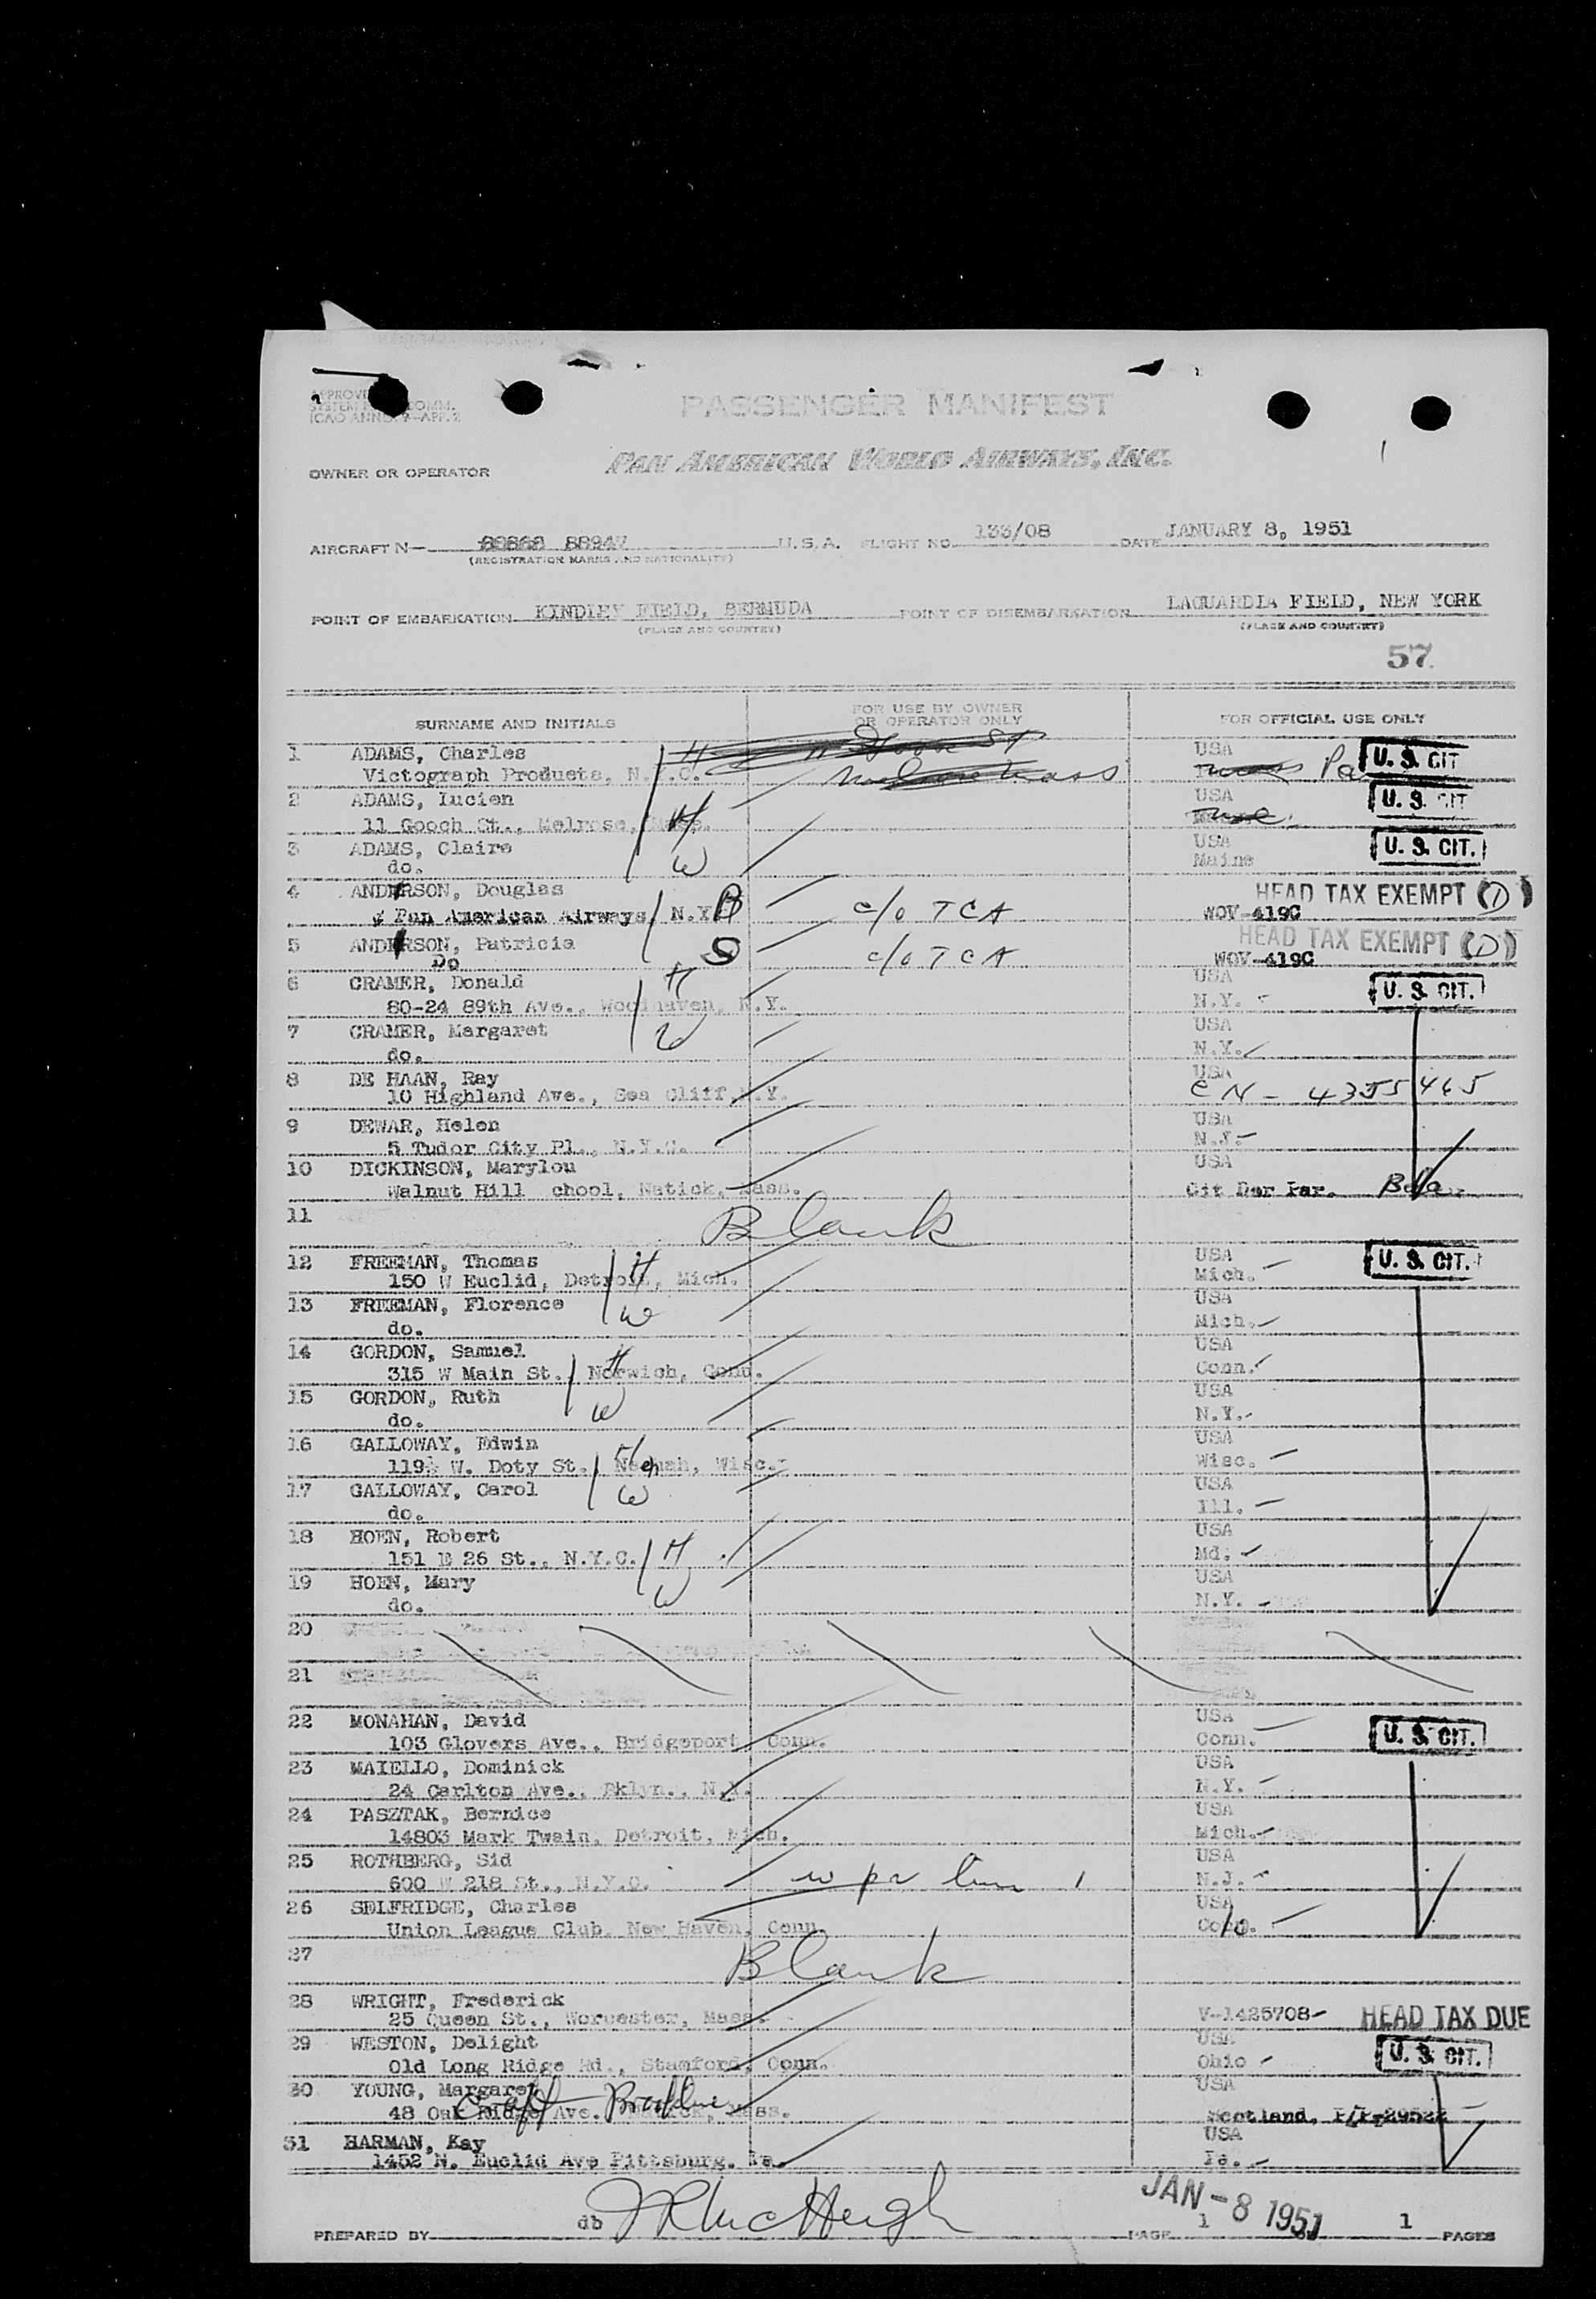 PASSENGER MANIFEST
ICAO ANNEX 9-APP. 2
OWNER OR OPERATOR PAN AMERICAN WORLD AIRWAYS, INC.
AIRCRAFT N— U.S.A. FLIGHT NO. 133/08 DATE JANUARY 8, 1951
(REGISTRATION MARKS AND NATIONALITY)
POINT OF EMBARKATION KINDLEY FIELD, BERMUDA POINT OF DISEMBARKATION LAGUARDIA FIELD, NEW YORK
(PLACE AND COUNTRY) (PLACE AND COUNTRY)
57
SURNAME AND INITIALS FOR USE BY OWNER OR OPERATOR ONLY FOR OFFICIAL USE ONLY
1 ADAMS, Charles H USA U. S. CIT
Victograph Products, N.Y.C. Pa
2 ADAMS, Lucien USA U. S. CIT
11 Gooch St., Melrose, Mass. H
3 ADAMS, Claire USA U. S. CIT.
do. W Maine
4 ANDERSON, Douglas HEAD TAX EXEMPT (D)
Pan American Airways, N.Y. B c/o TCA WOV-419C
5 ANDERSON, Patricia HEAD TAX EXEMPT (D)
Do S c/o TCA WOV-419C
6 CRAMER, Donald H USA U. S. CIT.
80-24 89th Ave., Woodhaven, N.Y. N.Y.
7 CRAMER, Margaret USA
do. W N.Y.
8 DE HAAN, Ray USA
10 Highland Ave., Sea Cliff, N.Y. CN - 4355465
9 DEWAR, Helen USA
5 Tudor City Pl., N.Y.C. N.J.
10 DICKINSON, Marylou USA
Walnut Hill chool, Natick, Mass. Cit Der Par.
11 Blank
12 FREEMAN, Thomas H USA U. S. CIT.
150 W Euclid, Detroit, Mich. Mich.
13 FREEMAN, Florence USA
do. W Mich.
14 GORDON, Samuel H USA
315 W Main St., Norwich, Conn. Conn.
15 GORDON, Ruth USA
do. W N.Y.
16 GALLOWAY, Edwin H USA
W. Doty St., Neenah, Wisc. Wisc.
17 GALLOWAY, Carol USA
do. W Ill.
18 HOEN, Robert USA
151 E 26 St., N.Y.C. H Md.
19 HOEN, Mary USA
do. W N.Y.
20
21
22 MONAHAN, David USA U. S. CIT.
103 Glovers Ave., Bridgeport, Conn. Conn.
23 MAIELLO, Dominick USA
24 Carlton Ave., Bklyn., N.Y. N.Y.
24 PASZTAK, Bernice USA
14803 Mark Twain, Detroit, Mich. Mich.
25 ROTHBERG, Sid USA
600 W 218 St., N.Y.C. N.J.
26 SELFRIDGE, Charles USA
Union League Club, New Haven, Conn.
27 Blank
28 WRIGHT, Frederick
25 Queen St., Worcester, Mass. V-1425708 HEAD TAX DUE
29 WESTON, Delight USA
Old Long Ridge Rd., Stamford, Conn. Ohio U. S. CIT.
30 YOUNG, Margaret USA
48 Oak Ridge Ave. Mass. Scotland,
31 HARMAN, Kay USA
1452 N. Euclid Ave Pittsburg. Pa. Pa.
PREPARED BY db PAGE 1 1 PAGES
JAN - 8 1951